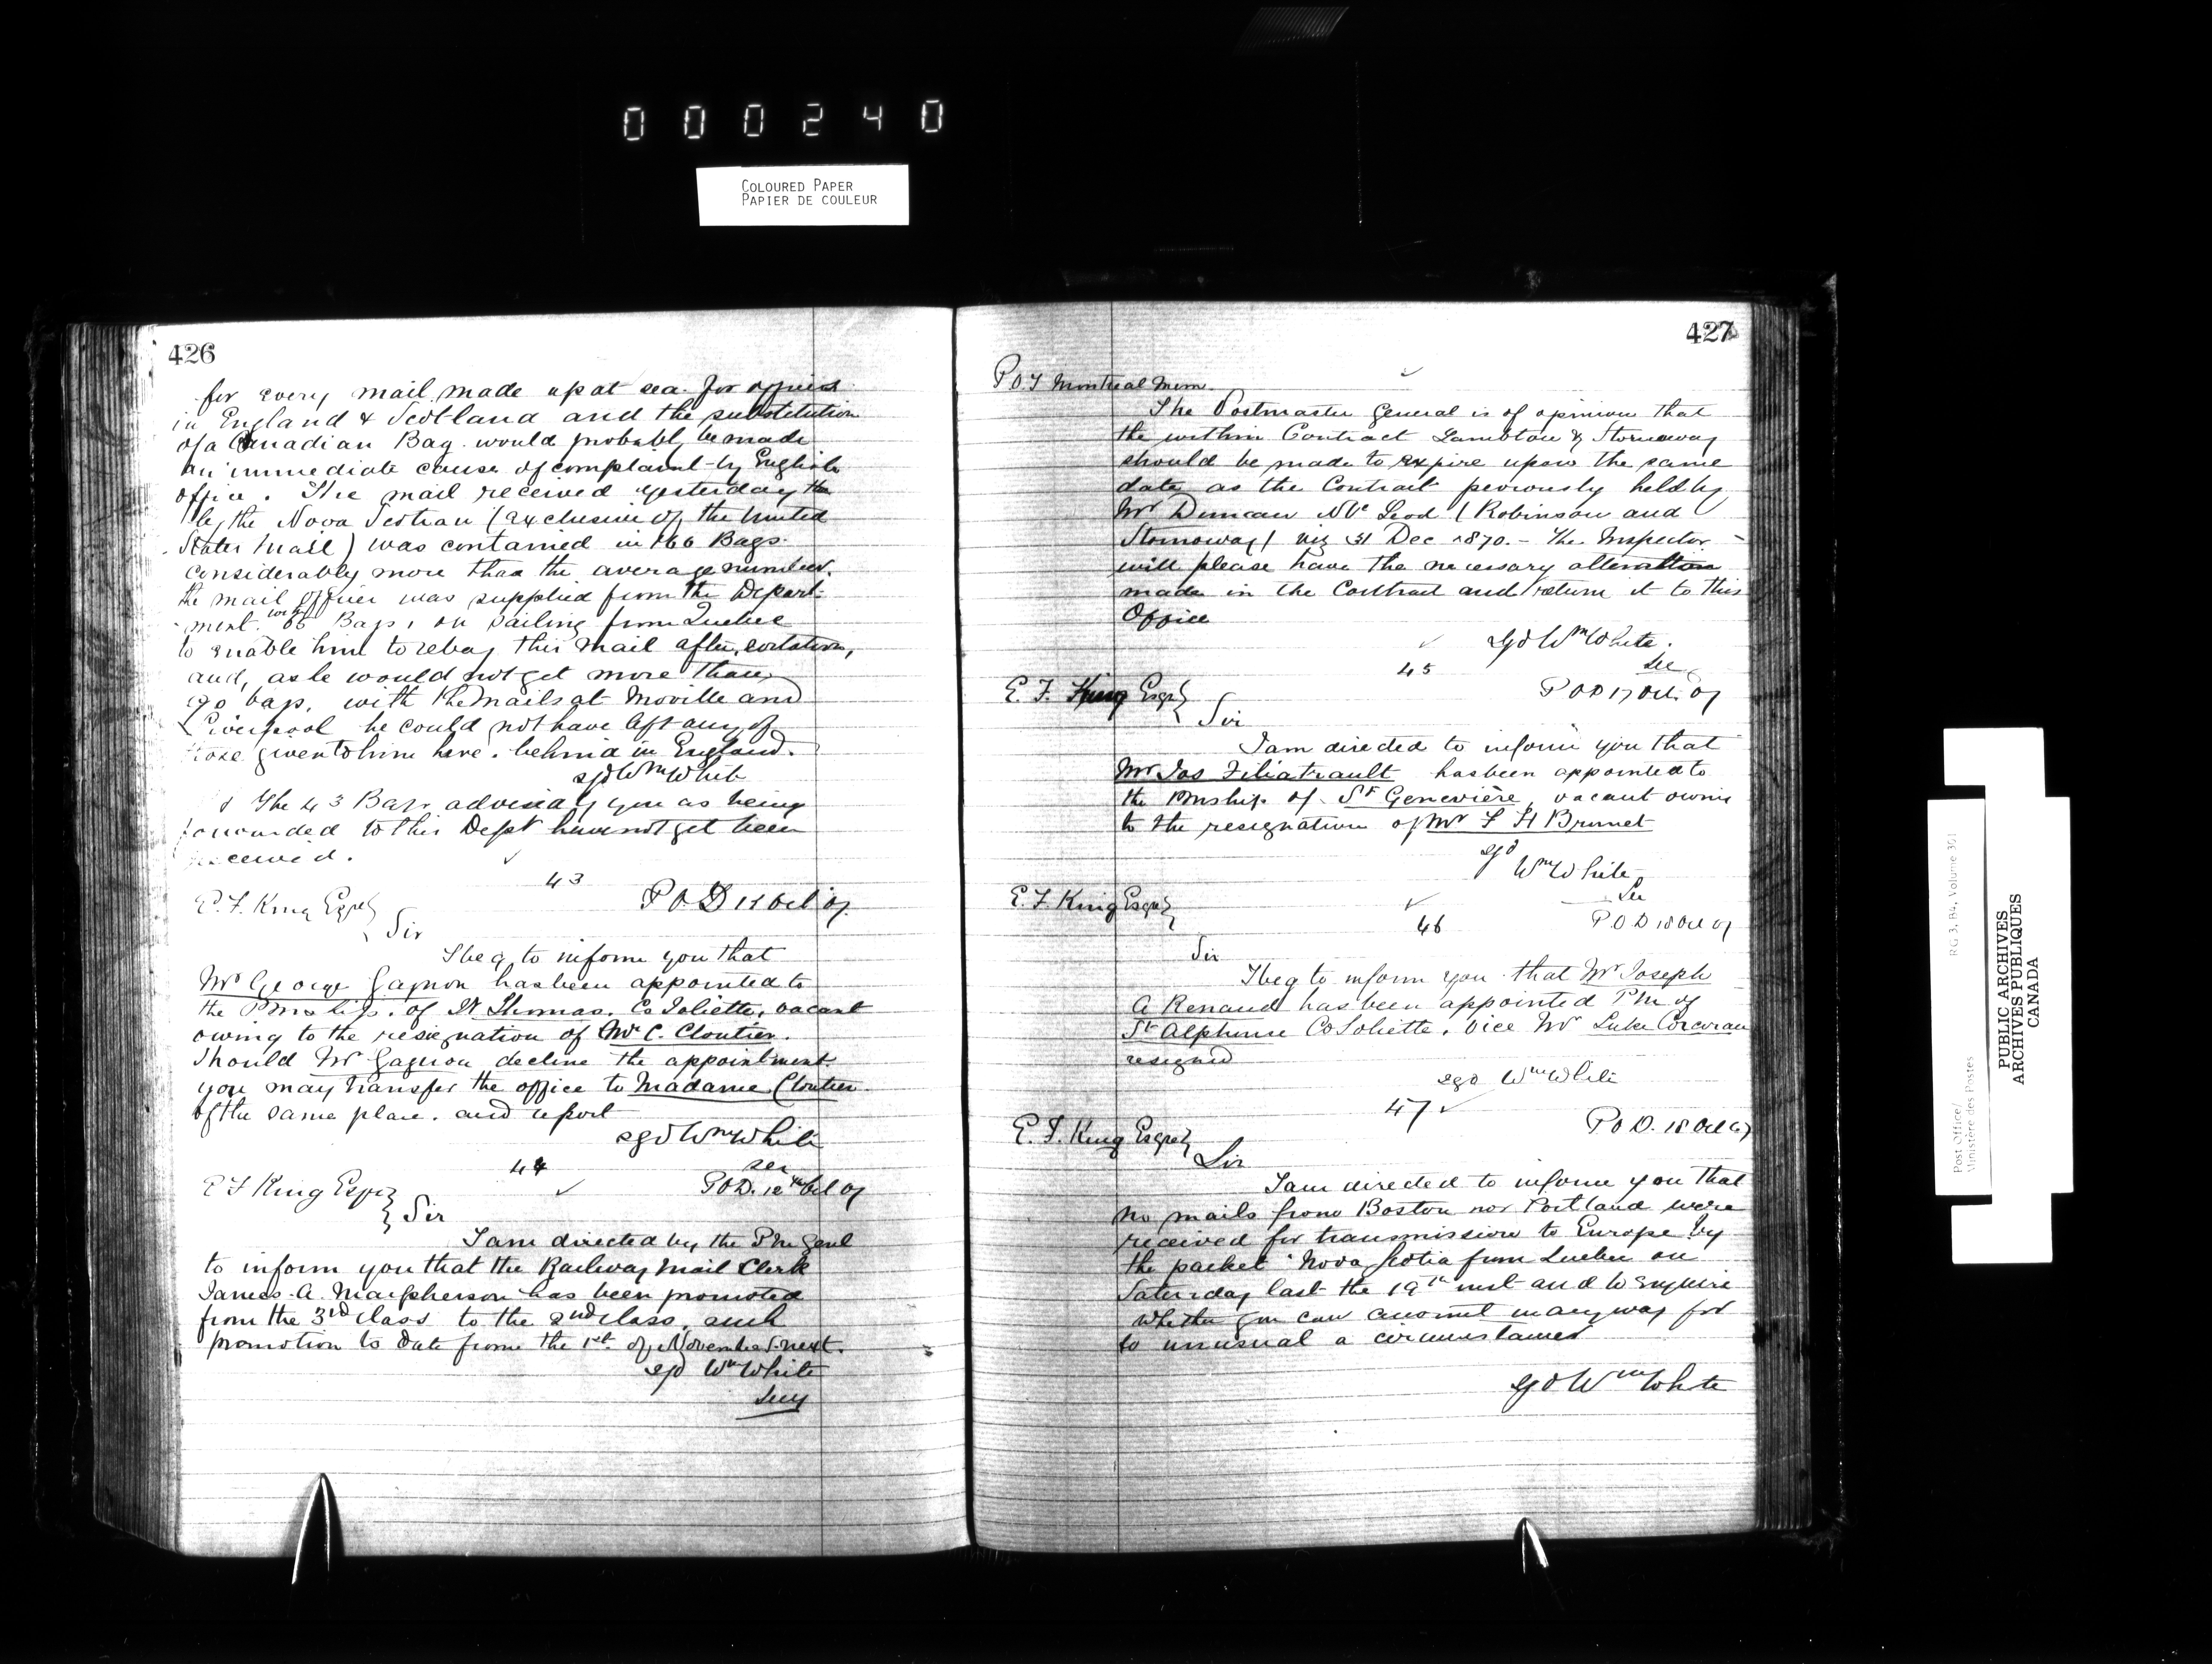 000240
COLOURED PAPER
PAPIER DE COULEUR
426
for every mail made up at sea for offices
in England & Scotland and the substitution
of a Canadian Bag would probably be made
an immediate cause of complaint by English
office. The mail received yesterday
by the Nova Scotian (exclusive of the United
States Mail) was contained in 166 Bags
considerably more than the average number.
the mail officer was supplied from the Depart-
ment with 66 Bags, on sailing from Quebec
to enable him to rebag this mail after sortation,
and, as he would not get more than
90 bags, with the mails at Moville and
Liverpool he could not have left any of
those given to him here. behind in England.
sgd Wm White
The 43 Bags advised by you as being
forwarded to this Dept have not yet been
received.
43
E. F. King Esqre
P O D 15 Oct 67
Sir
I beg to inform you that
Mr George Gagnon has been appointed to
the Pmship. of St Thomas. Co Joliette, vacant
owing to the resignation of Mr C. Cloutier.
Should Mr Gagnon decline the appointment
you may transfer the office to Madame Cloutier
of the same place. and report
sgd Wm White
Sec
44
E F King Esqre
P O D. 12th Oct 67
Sir
I am directed by the Pm Genl
to inform you that the Railway Mail Clerk
James. A. Macpherson has been promoted
from the 3rd class to the 2nd class, such
promotion to date from the 1st of November next.
sgd Wm White
Secy
427
P.O.I Montreal Mem.
The Postmaster General is of opinion that
the within Contract Lambton & Stornoway
should be made to expire upon the same
date as the Contract peviously held by
Mr Duncan McLeod (Robinson and
Stornoway) viz 31 Dec 1870. - The Inspector
will please have the necessary alteration
made in the Contract and return it to this
Office
sgd Wm White.
Sec
45
E. F. King Esqre
P O D 17 Oct. 67
Sir
I am directed to inform you that
Mr Jos Filiatrault has been appointed to
the Pmship of St Genevière, vacant owing
to the resignation of Mr F H Brunet
sgd
Wm White
Sec
E. F. King Esqre
46
P O D 18 Oct 67
Sir
I beg to inform you that Mr Joseph
A Renaud has been appointed Pm of
St Alphonse Co Joliette. vice Mr Luke Corcoran
resigned
sgd Wm White
47
E. F. King Esqre
P O D. 18 Oct 67
Sir
I am directed to inform you that
no mails from Boston nor Portland were
received for transmission to Europe by
the packet "Nova Scotia from Quebec on
Saturday last the 19th inst and to enquire
whether you can account in any way for
so unusual a circumstance
sgd Wm White
RG 3, B4, Volume 301
Post Office/
Ministère des Postes
PUBLIC ARCHIVES
ARCHIVES PUBLIQUES
CANADA